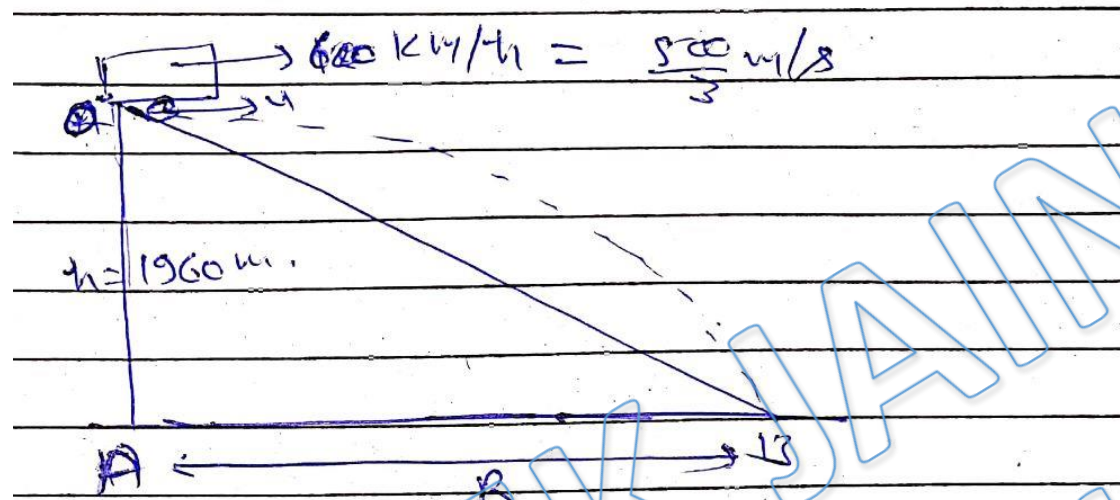 600 km/h = 500/3 m/s
u
h = 1960 m.
A
B
R
K JAIN